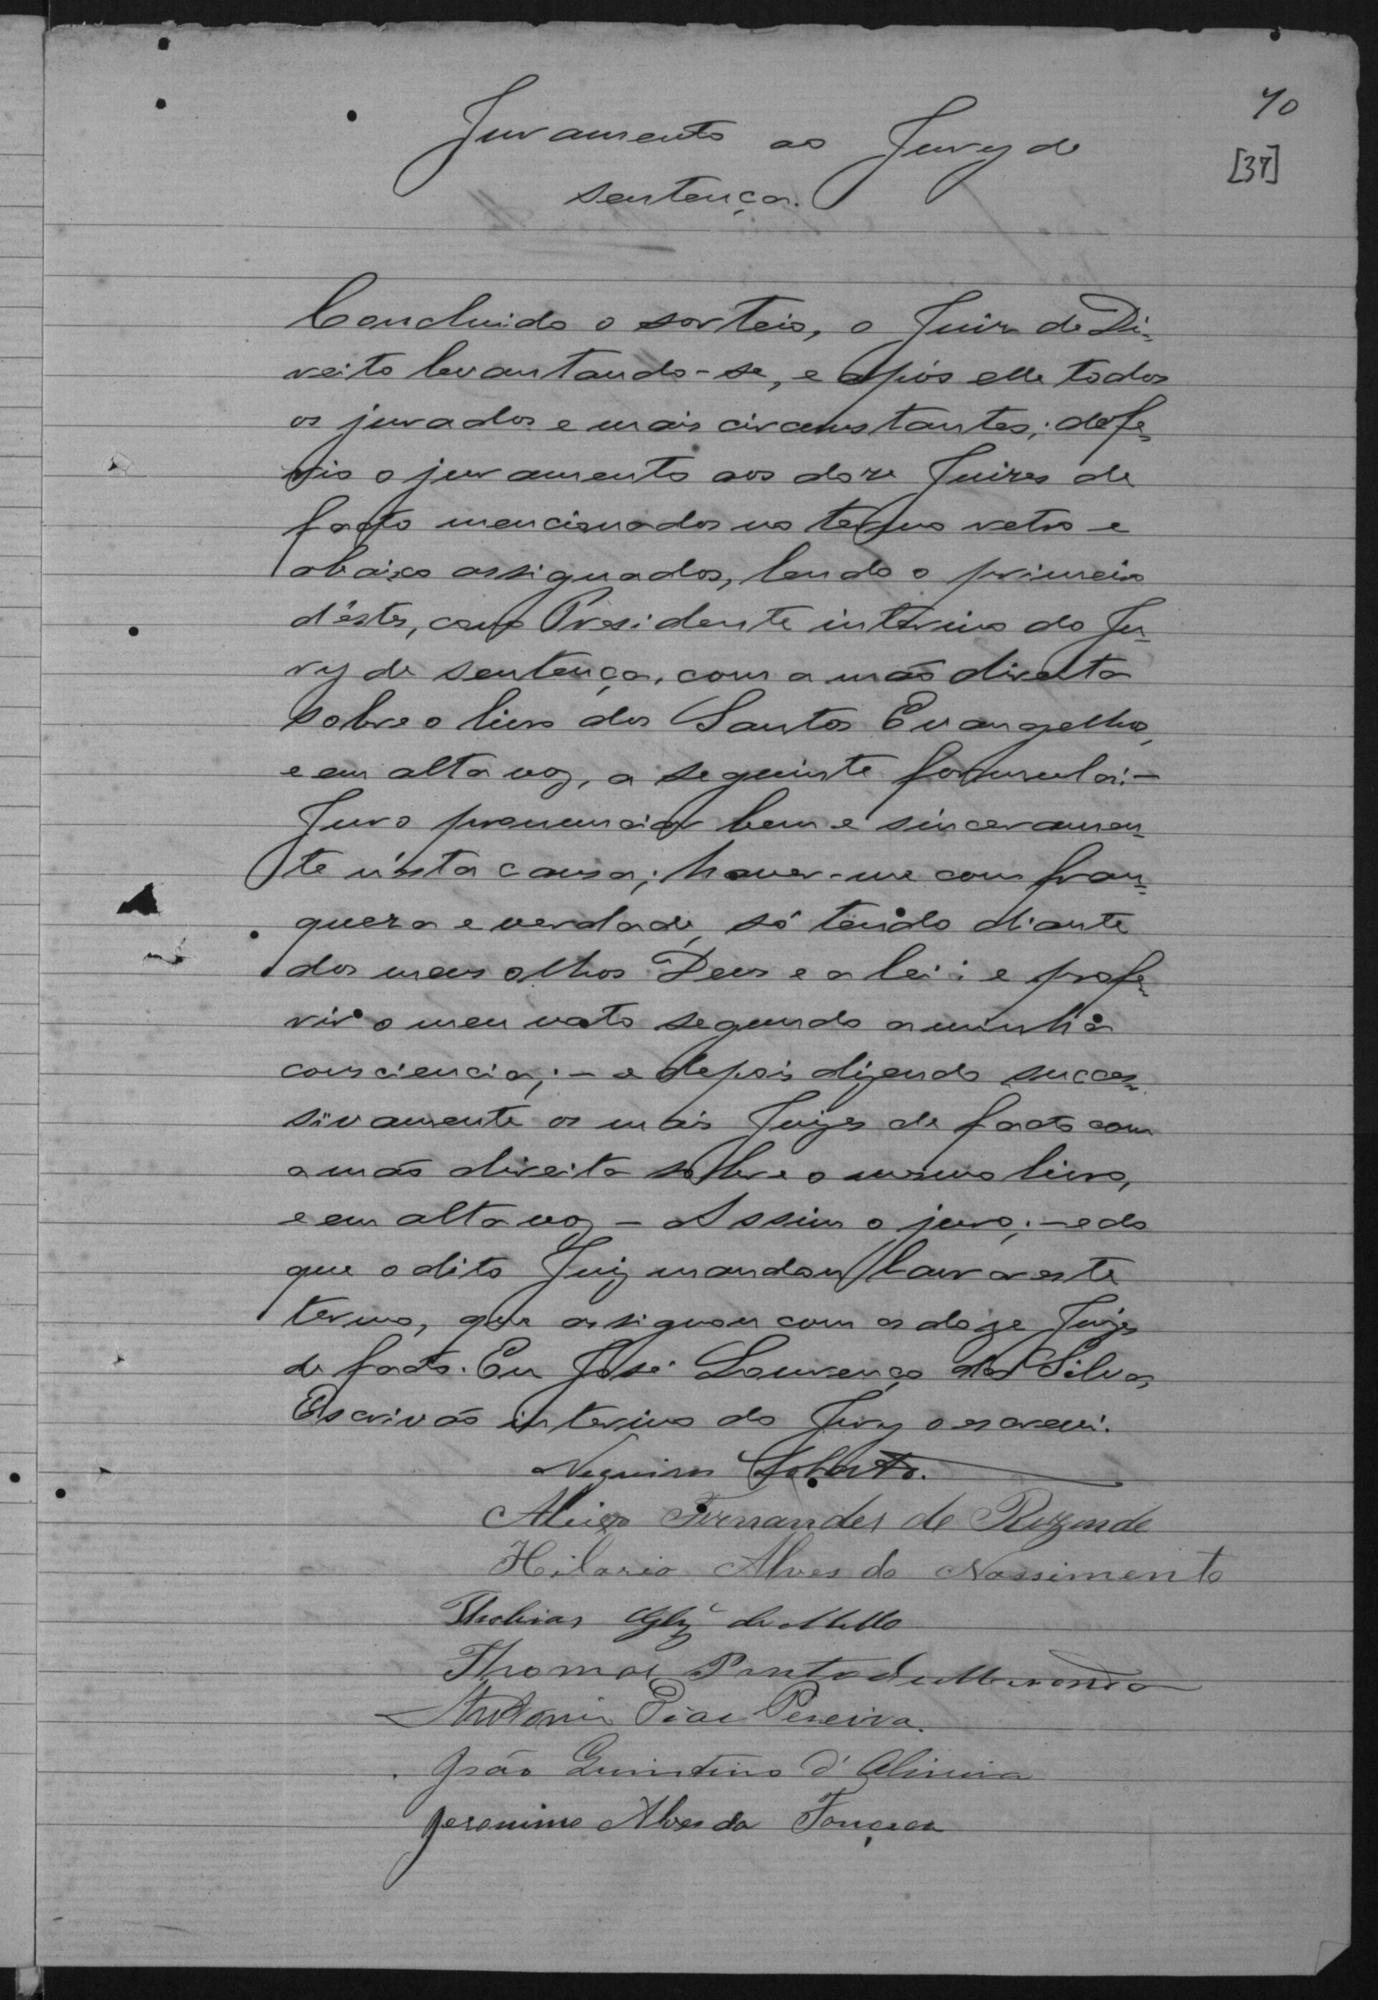 70
[37]
Juramento ao Jury de
sentença.
Concluido o sorteio, o Juiz de Di-
reito levantando-se, e após elle todos
os jurados e mais circumstantes; defe-
rio o juramento aos doze Juizes de
facto mencionados no termo retro e
abaixo assignados, lendo o primeiro
d'estes, como Presidente interino do Ju-
ry de sentença, com a mão direita
sobre o livro dos Santos Evangelhos,
e em alta voz, a seguinte formula:-
Juro pronunciar bem e sinceramen-
te n'esta causa; haver-me com fran-
queza e verdade, só tendo diante
dos meus olhos Deus e a lei; e profe-
rir o meu voto segundo a minha
consciencia; - e depois dizendo succes-
sivamente os mais Juizes de facto com
a mão direita sobre o mesmo livro,
e em alta voz - Assim o juro; - e do
que o dito Juiz mandou lavrar este
termo, que assignou com os doze Juizes
de facto. Eu José Lourenço da Silva,
Escrivão interino do Jury o escrevi.
Nogueira
Fernandes de Rezende
Hilario Alves do Nassimento
Thobias de Mello
Thomas Pinto de Miranda
Antonio Dias Pereira.
João Quintino d'Oliveira
Jeronimo Alves da Fonçeca